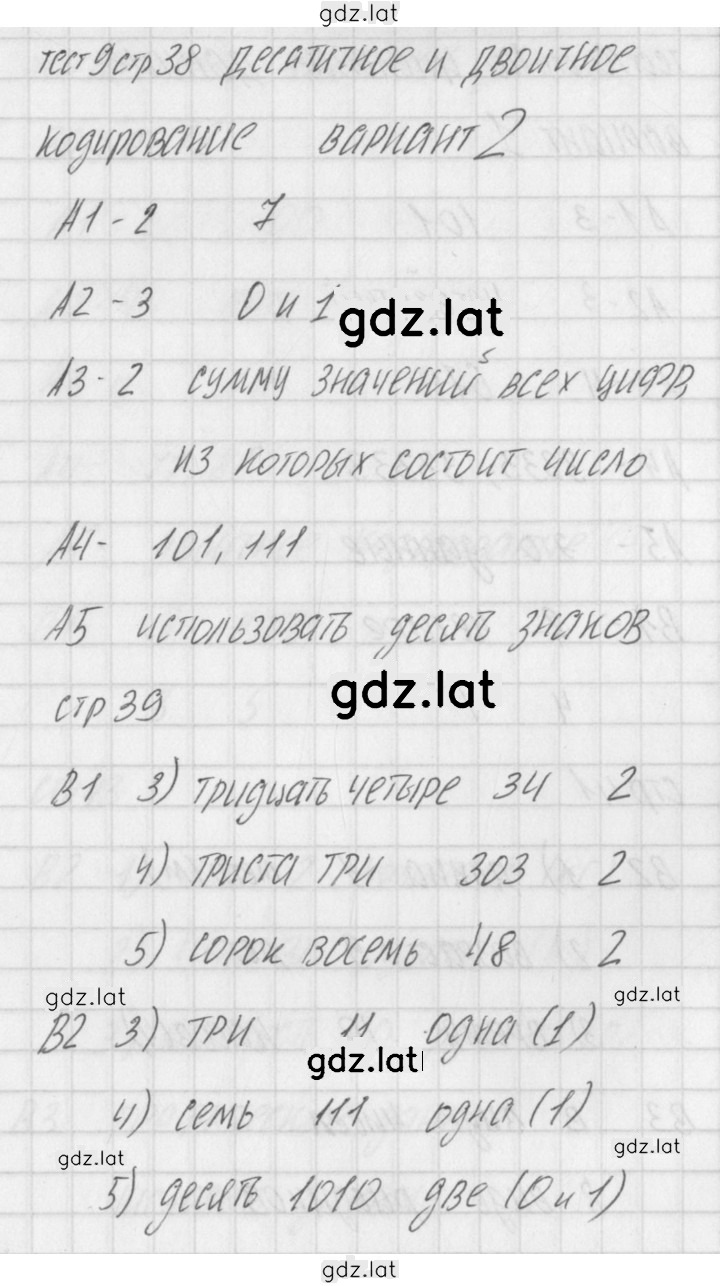 gdz.lat
тест 9 стр 38 Десятичное и двоичное
кодирование вариант 2
А1 - 2 7
А2 - 3 0 и 1
gdz.lat
А3 - 2 сумму значений всех цифр,
из которых состоит число
А4 - 101, 111
А5 использовать десять знаков
gdz.lat
стр 39
В1 3) тридцать четыре 34 2
4) триста три 303 2
5) сорок восемь 48 2
gdz.lat gdz.lat
В2 3) три 11 одна (1)
gdz.lat
4) семь 111 одна (1)
gdz.lat gdz.lat
5) десять 1010 две (0 и 1)
gdz.lat